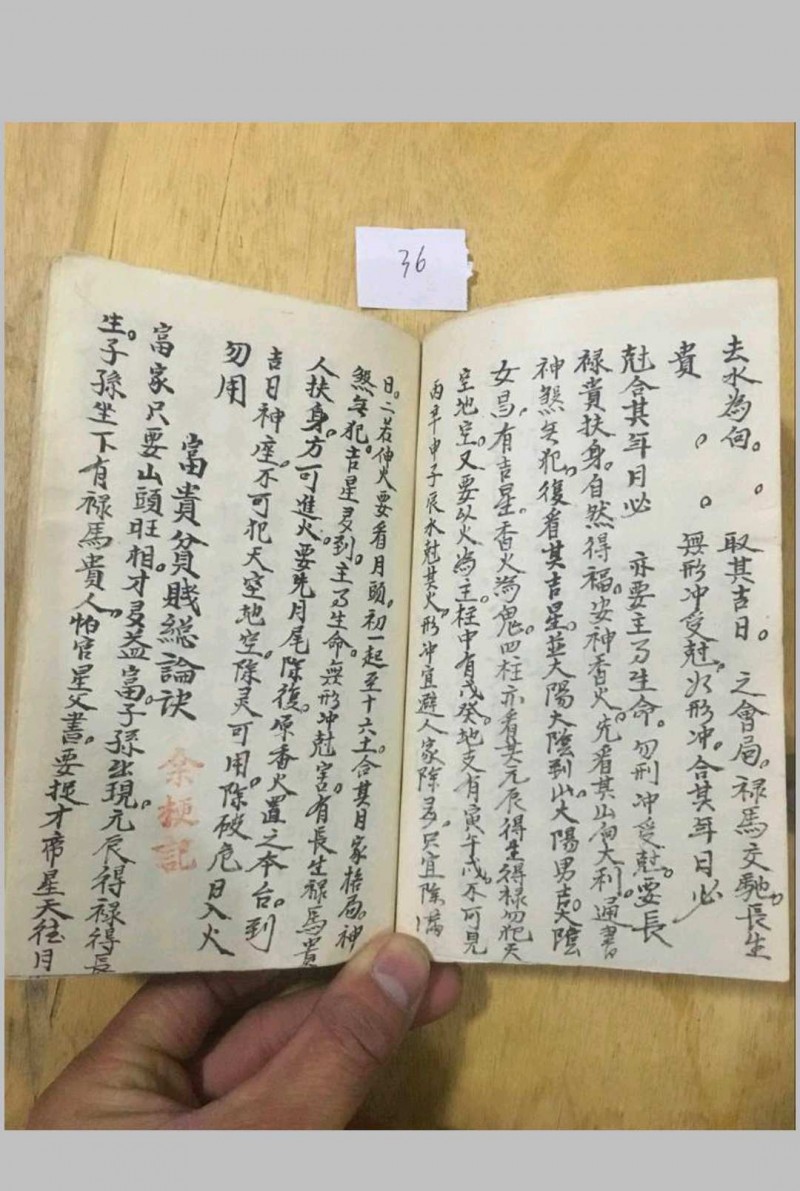 36
去水為向。取其吉日。之會局。祿馬交馳。長生
貴 無形冲受尅。 形冲。合其年日必
尅合其年月必 亦要主乃生命。勿刑冲受尅。要長
祿貴扶身。自然得福。安神香火。先看其山向大利。通書
神煞無犯。復看其吉星。並太陽太陰到山。太陽男吉。太陰
女昌。有吉星。香火為鬼。四柱亦看其元辰得生得祿。勿犯天
空地空。又要以火為主。柱中有戊癸。地支有寅午戌。不可見
丙辛申子辰水尅其火。形冲宜避人家除多。只宜除
日。二若伸火要看月頭。初一起至十六止。合其日家格局。神
煞無犯。吉星多到。主乃生命。無形冲尅害。有長生祿馬貴
人扶身。方可進火。要先月尾除復。原香火置之本台。到
吉日神座。不可犯天空地空。除灵可用。除破危日入火
勿用
富貴貧賤総論訣
余梗記
富家只要山頭旺相。才多益富。子孫出現。元辰得祿得長
生。子孫坐下有祿馬貴人。怕官星父書。要捉才帝星天往月